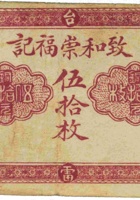 台
致和崇福記
伍拾枚
雷